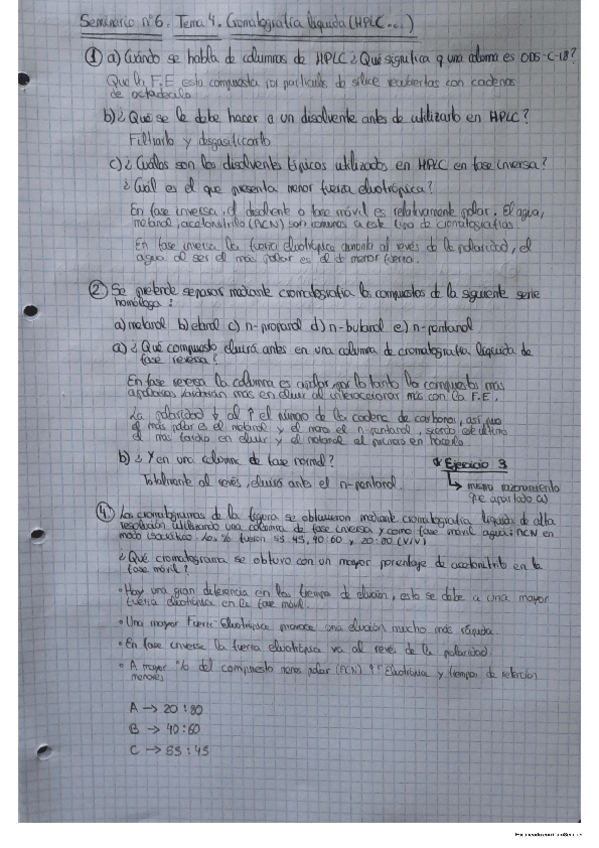 Seminario nº6. Tema 4. Cromatografía líquida (HPLC...)
① a) Cuándo se habla de columnas de HPLC ¿Qué significa q una columna es ODS-C-18?
Que la F.E esta compuesta por particulas de sílice recubiertas con cadenas
de octadecilo
b) ¿Qué se le debe hacer a un disolvente antes de utilizarlo en HPLC?
Filtrarlo y desgasificarlo
c) ¿Cuáles son los disolventes típicos utilizados en HPLC en fase inversa?
¿Cuál es el que presenta menor fuerza eluotrópica?
En fase inversa, el disolvente o fase móvil es relativamente polar. El agua,
metanol, acetonitrilo (ACN) son comunes a este tipo de cromatografías
En fase inversa la fuerza eluotrópica aumenta al revés de la polaridad, el
agua al ser el más polar es el de menor fuerza.
② Se pretende separar mediante cromatografía los compuestos de la siguiente serie
homóloga:
a) metanol b) etanol c) n-propanol d) n-butanol e) n-pentanol
a) ¿Qué compuesto eluirá antes en una columna de cromatografía líquida de
fase reversa?
En fase reversa la columna es apolar, por lo tanto los compuestos más
apolares tardarán más en eluir al interaccionar más con la F.E.
La polaridad ↓ al ↑ el número de la cadena de carbonos, así que
el más polar es el metanol y el menos el n-pentanol, siendo este último
el más tardío en eluir y el metanol el primero en hacerlo
b) ¿Y en una columna de fase normal?
Totalmente al revés, eluirá antes el n-pentanol.
Ejercicio 3
↳ mismo razonamiento
que apartado a)
④ Los cromatogramas de la figura se obtuvieron mediante cromatografía líquida de alta
resolución utilizando una columna de fase inversa y como fase móvil agua:ACN en
modo isocrático. Los % fueron 55:45, 40:60 y 20:80 (V/V)
¿Qué cromatograma se obtuvo con un mayor porcentaje de acetonitrilo en la
fase móvil?
• Hay una gran diferencia en los tiempos de elución, esto se debe a una mayor
fuerza eluotrópica en la fase móvil.
• Una mayor Fuerza Eluotrópica provoca una elución mucho más rápida.
• En fase inversa la fuerza eluotrópica va al revés de la polaridad
• A mayor % del compuesto menos polar (ACN) ↑F Eluotrópica y tiempos de retención
menores
A → 20:80
B → 40:60
C → 55:45